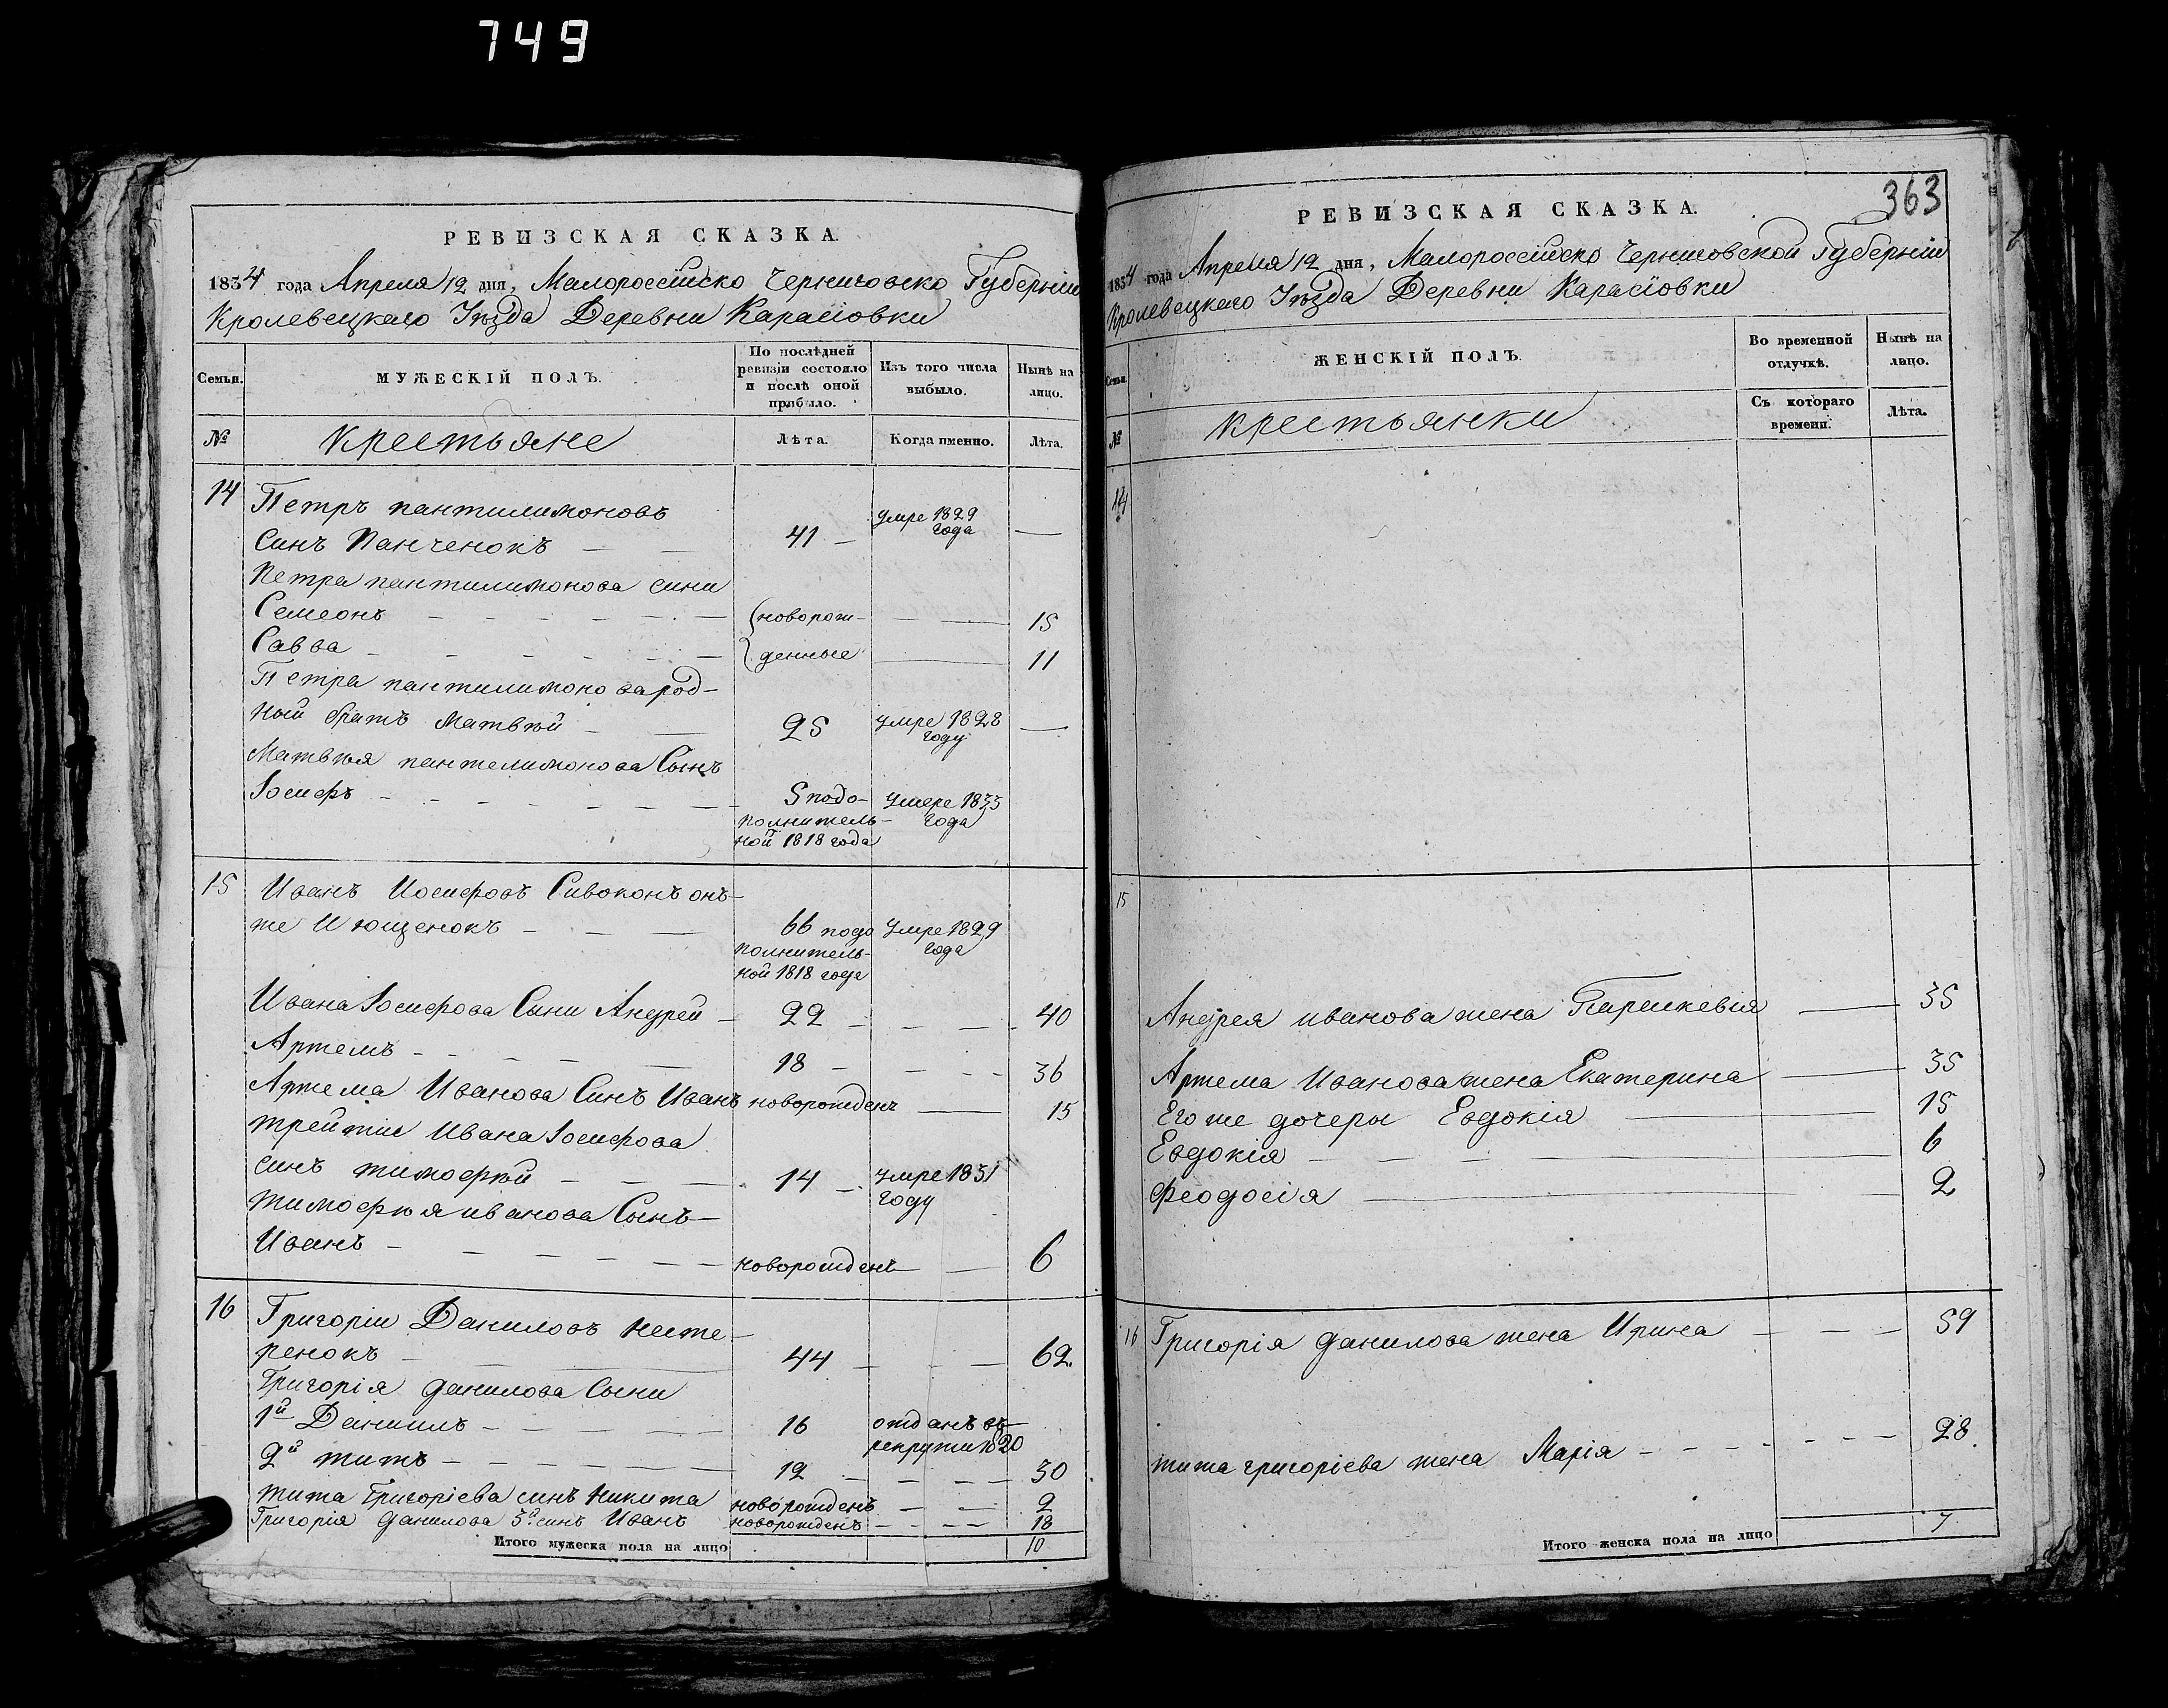 749
РЕВИЗСКАЯ СКАЗКА.
1834 года Апреля 12 дня, Малороссійско Черниговско Губерніи
Кролевецкаго Уѣзда Деревни Карасіовки
Семьи.
МУЖЕСКІЙ ПОЛЪ.
По послѣдней ревизіи состояло и послѣ оной прибыло.
Изъ того числа выбыло.
Нынѣ на лицо.
№
Крестьяне
Лѣта.
Когда именно.
Лѣта.
14 Петръ пантилимоновъ
синъ Панченокъ — — 41 — умре 1829 года —
Петра пантилимонова сини
Семеонъ — — — новорож- — 15
Савва — — — денные — 11
Петра пантилимонова род-
ный братъ Матвѣй — — 25 умре 1828 году —
Матвѣя пантелимонова Сынъ
Іосифъ — — — 5 подо- умере 1833
полнитель- года
ной 1818 года
15 Иванъ Иосифовъ Сивоконъ онъ-
же Иющенокъ — — — 66 подо умре 1829
полнитель- года
ной 1818 года
Ивана Іосифова Сыни Андрей — 22 — — — 40
Артемъ — — — 18 — — — 36
Артема Иванова Синъ Иванъ новорожденъ — 15
трейтіи Ивана Іосифова
синъ тимофѣй — — — 14 — умре 1831
году
тимофѣя иванова Сынъ—
Иванъ — — — новорожденъ — 6
16 Григоріи Даниловъ Несте-
ренокъ — 44 — — — 62.
Григорія данилова Сыни
1й Даніилъ — — — 16 отданъ въ
рекрути 1820
2й титъ — — — 12 — — — 30
тита Григоріева синъ Никита новорожденъ — — 2
Григорія данилова 3й синъ Иванъ новорожденъ — — 18
Итого мужеска пола на лицо 10
363
РЕВИЗСКАЯ СКАЗКА.
1834 года Апреля 12 дня, Малороссійско Черниговской Губерніи
Кролевецкаго Уѣзда Деревни Карасіовки
Семьи.
ЖЕНСКІЙ ПОЛЪ.
Во временной отлучкѣ.
Нынѣ на лицо.
№
крестьянки
Съ котораго времени.
Лѣта.
14
15
Андрея иванова жена Параскевія — 35
Артема Иванова жена Екатерина — 35
Его же дочеры Евдокія — 15
Евдокія — — — 6
Феодосія — 2
16 Григорія данилова жена Ирина — — — 59
тита григоріева жена Марія — — — 28.
Итого женска пола на лицо 7